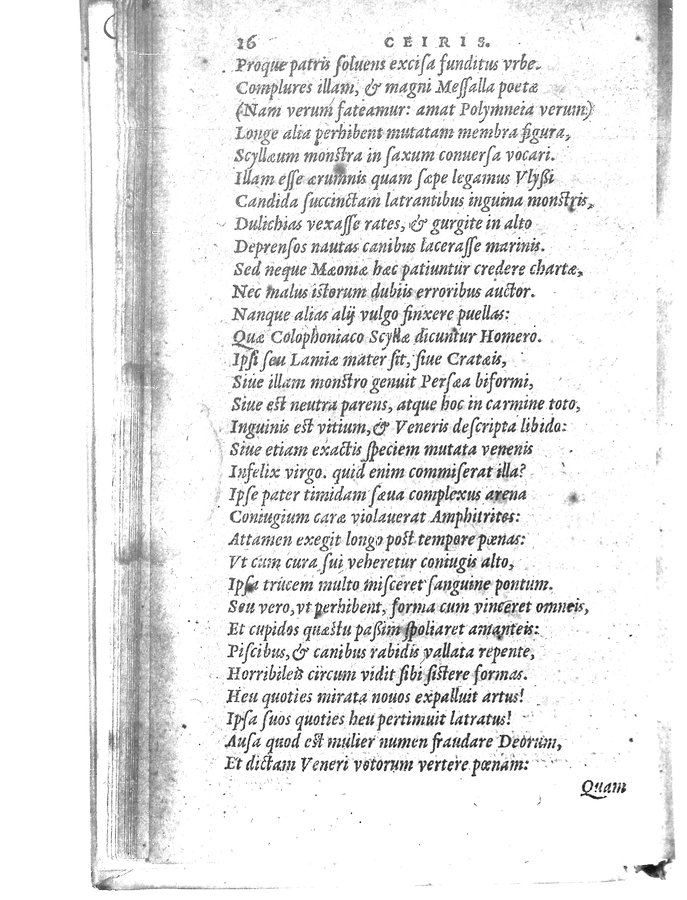 16 CEIRIS.
Proque patris soluens excisa funditus vrbe.
Complures illam, & magni Messalla poetæ
(Nam verum fateamur: amat Polymneia verum)
Longe alia perhibent mutatam membra figura,
Scyllæum monstra in saxum conuersa vocari.
Illam esse ærumnis quam sæpe legamus Vlyßi
Candida succinctam latrantibus inguina monstris,
Dulichias vexasse rates, & gurgite in alto
Deprensos nautas canibus lacerasse marinis.
Sed neque Mæoniæ hæc patiuntur credere chartæ,
Nec malus istorum dubiis erroribus auctor.
Nanque alias alij vulgo finxere puellas:
Quæ Colophoniaco Scyllæ dicuntur Homero.
Ipsi seu Lamiæ mater sit, siue Cratæis,
Siue illam monstro genuit Persæa biformi,
Siue est neutra parens, atque hoc in carmine toto,
Inguinis est vitium, & Veneris descripta libido:
Siue etiam exactis speciem mutata venenis
Infelix virgo. quid enim commiserat illa?
Ipse pater timidam sæua complexus arena
Coniugium caræ violauerat Amphitrites:
Attamen exegit longo post tempore pœnas:
Vt cum cura sui veheretur coniugis alto,
Ipsa trucem multo misceret sanguine pontum.
Seu vero, vt perhibent, forma cum vinceret omneis,
Et cupidos quæstu paßim spoliaret amanteis:
Piscibus, & canibus rabidis vallata repente,
Horribileis circum vidit sibi sistere formas.
Heu quoties mirata nouos expalluit artus!
Ipsa suos quoties heu pertimuit latratus!
Ausa quod est mulier numen fraudare Deorum,
Et dictam Veneri votorum vertere pœnam:
Quam